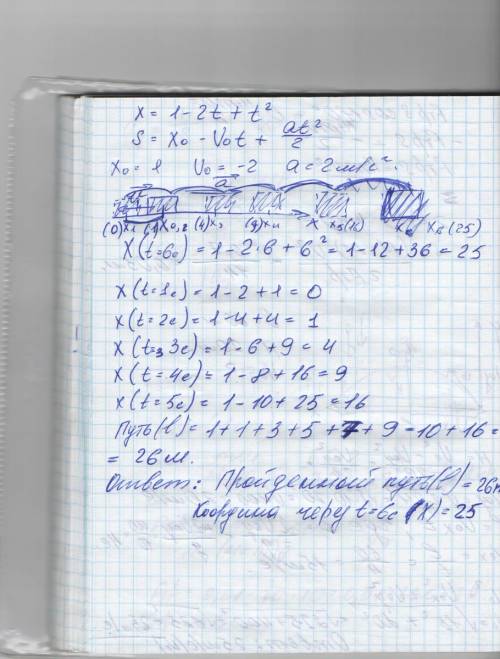 x = 1-2t + t²
S = x₀ - v₀t + at²/2
x₀ = 1 v₀ = -2 a = 2м/с².
a
X(t=6с) = 1-2·6 + 6² = 1-12+36 = 25
x(t=1с) = 1-2+1 = 0
x(t=2с) = 1-4+4 = 1
x(t=3с) = 1-6+9 = 4
x(t=4с) = 1-8+16 = 9
x(t=5с) = 1-10+25 = 16
Путь(l) = 1+1+3+5+7+9 = 10+16 =
= 26м.
Ответ: Пройденный путь(l) = 26м
Координа через t=6с (X) = 25